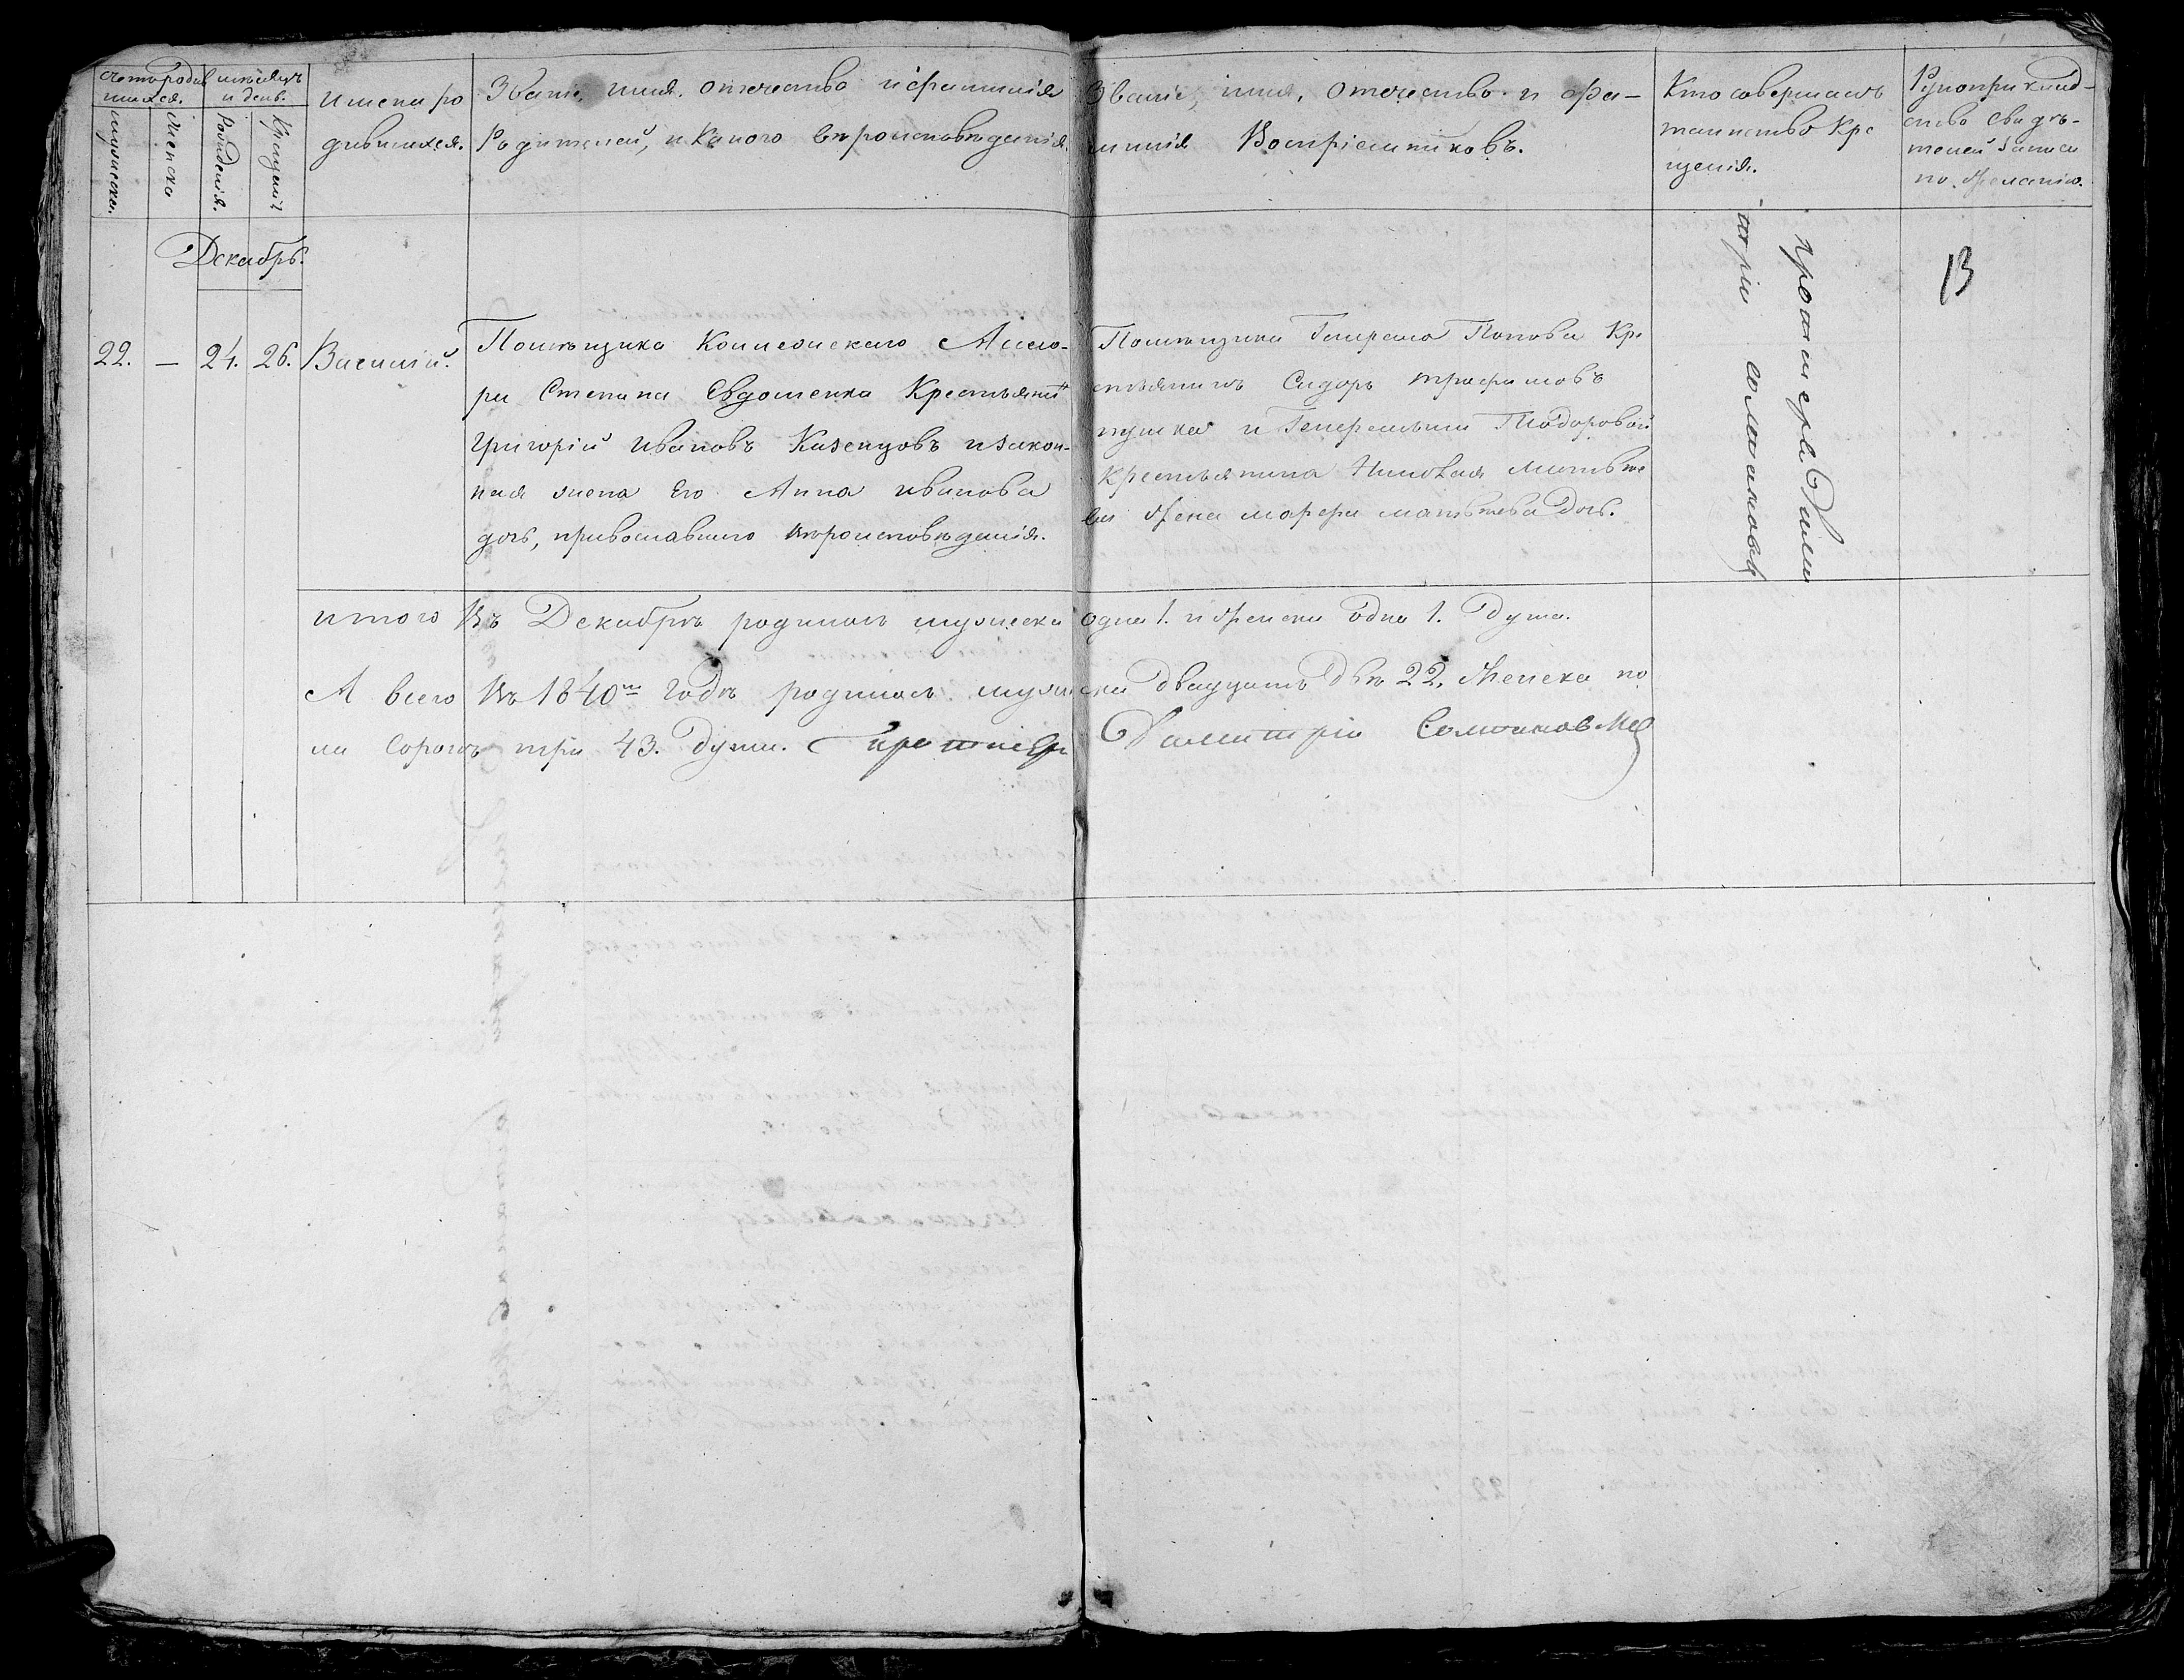 Счетъ родив
шихся.
мужеска.
женска
мѣсяцъ
и день.
Рожденія.
Крещенія
Имена ро
дившихся.
Званіе, имя, отечество и фамилія
Родителей, и какого вѣроисповѣданія.
Званіе, имя, отечество и фа-
милія Воспріемниковъ.
Кто совершалъ
таинство Кре
щенія.
Рукоприклад-
ство свидѣ-
телей записи
по желанію.
Декабрь.
22. — 24. 26. Василій.
Помѣщика Коллежскаго Ассесо-
ра Степана Евдошенка Крестьянинъ
Григорій Ивановъ Казенцовъ и закон-
ная жена Его Анна Иванова
дочь, православнаго вѣроисповѣданія.
Помѣщика Генерала Попова Кре
стьянинъ Сидоръ Трафимовъ
и Генеральши Тиодоровой
Крестьянина Николая Матвѣе
ва жена Марфа Матвѣева Дочь.
Протоиерей Дими
трій
13
итого Въ Декабрѣ родилось мужеска одна 1. и женска одна 1. Душа.
А всего Въ 1840м Годѣ родилось мужеска двадцать Двѣ 22, Женска по
ла Сорокъ три 43. Души. Протоиерей Димитрій